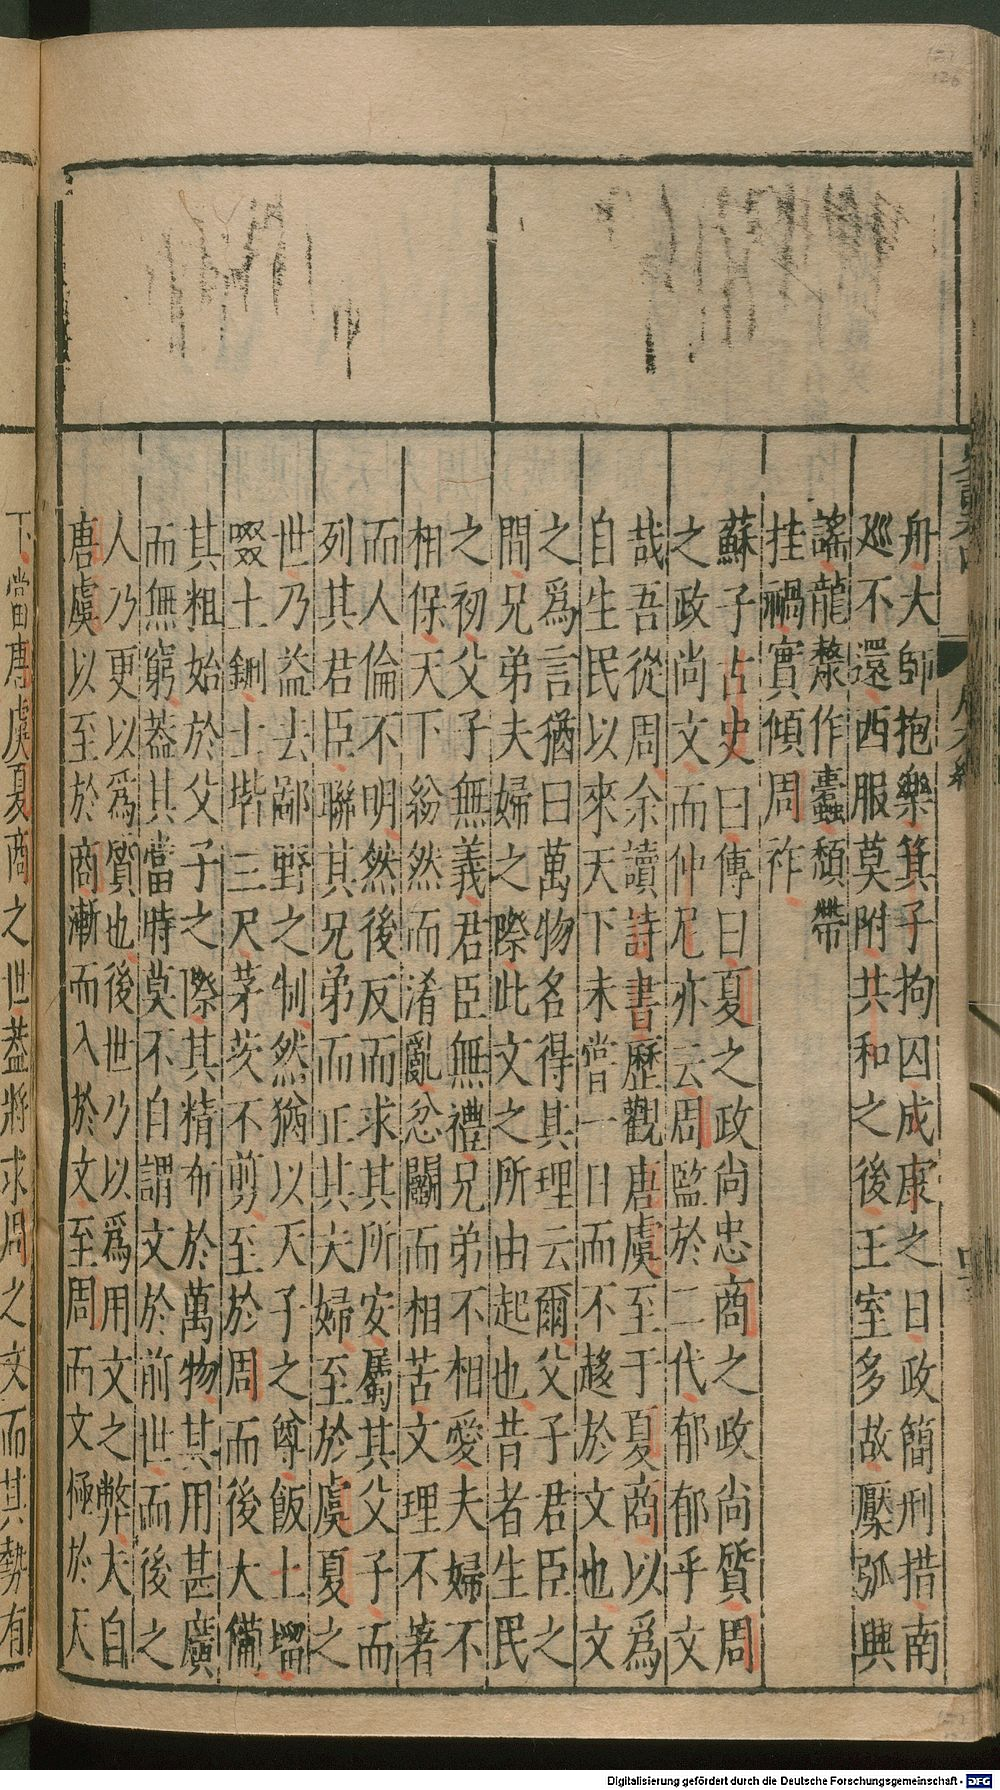 舟大師抱樂箕子拘囚成康之日政簡刑措南
巡不還西服莫附共和之後王室多故檿弧興
謠龍漦作蠹頹帶
挂禍實傾周祚
蘇子古史曰傳曰夏之政尚忠商之政尚質周
之政尚文而仲尼亦云周監於二代郁郁乎文
哉吾從周余讀詩書歷觀唐虞至于夏商以爲
自生民以來天下未嘗一日而不趍於文也文
之爲言猶曰萬物名得其理云爾父子君臣之
間兄弟夫婦之際此文之所由起也昔者生民
之初父子無義君臣無禮兄弟不相愛夫婦不
相保天下紛然而淆亂忿鬬而相苦文理不著
而人倫不明然後反而求其所安屬其父子而
列其君臣聯其兄弟而正其夫婦至於虞夏之
世乃益去鄙野之制然猶以天子之尊飯土塯
啜土鉶土堦三尺茅茨不剪至於周而後大備
其粗始於父子之際其精布於萬物其用甚廣
而無窮葢其當時莫不自謂文於前世而後之
人乃更以爲質也後世乃以爲用文之弊夫自
唐虞以至於商漸而入於文至周而文極於天
下當唐虞夏商之世葢將求周之文而其勢有
Digitalisierung gefördert durch die Deutsche Forschungsgemeinschaft - DFG